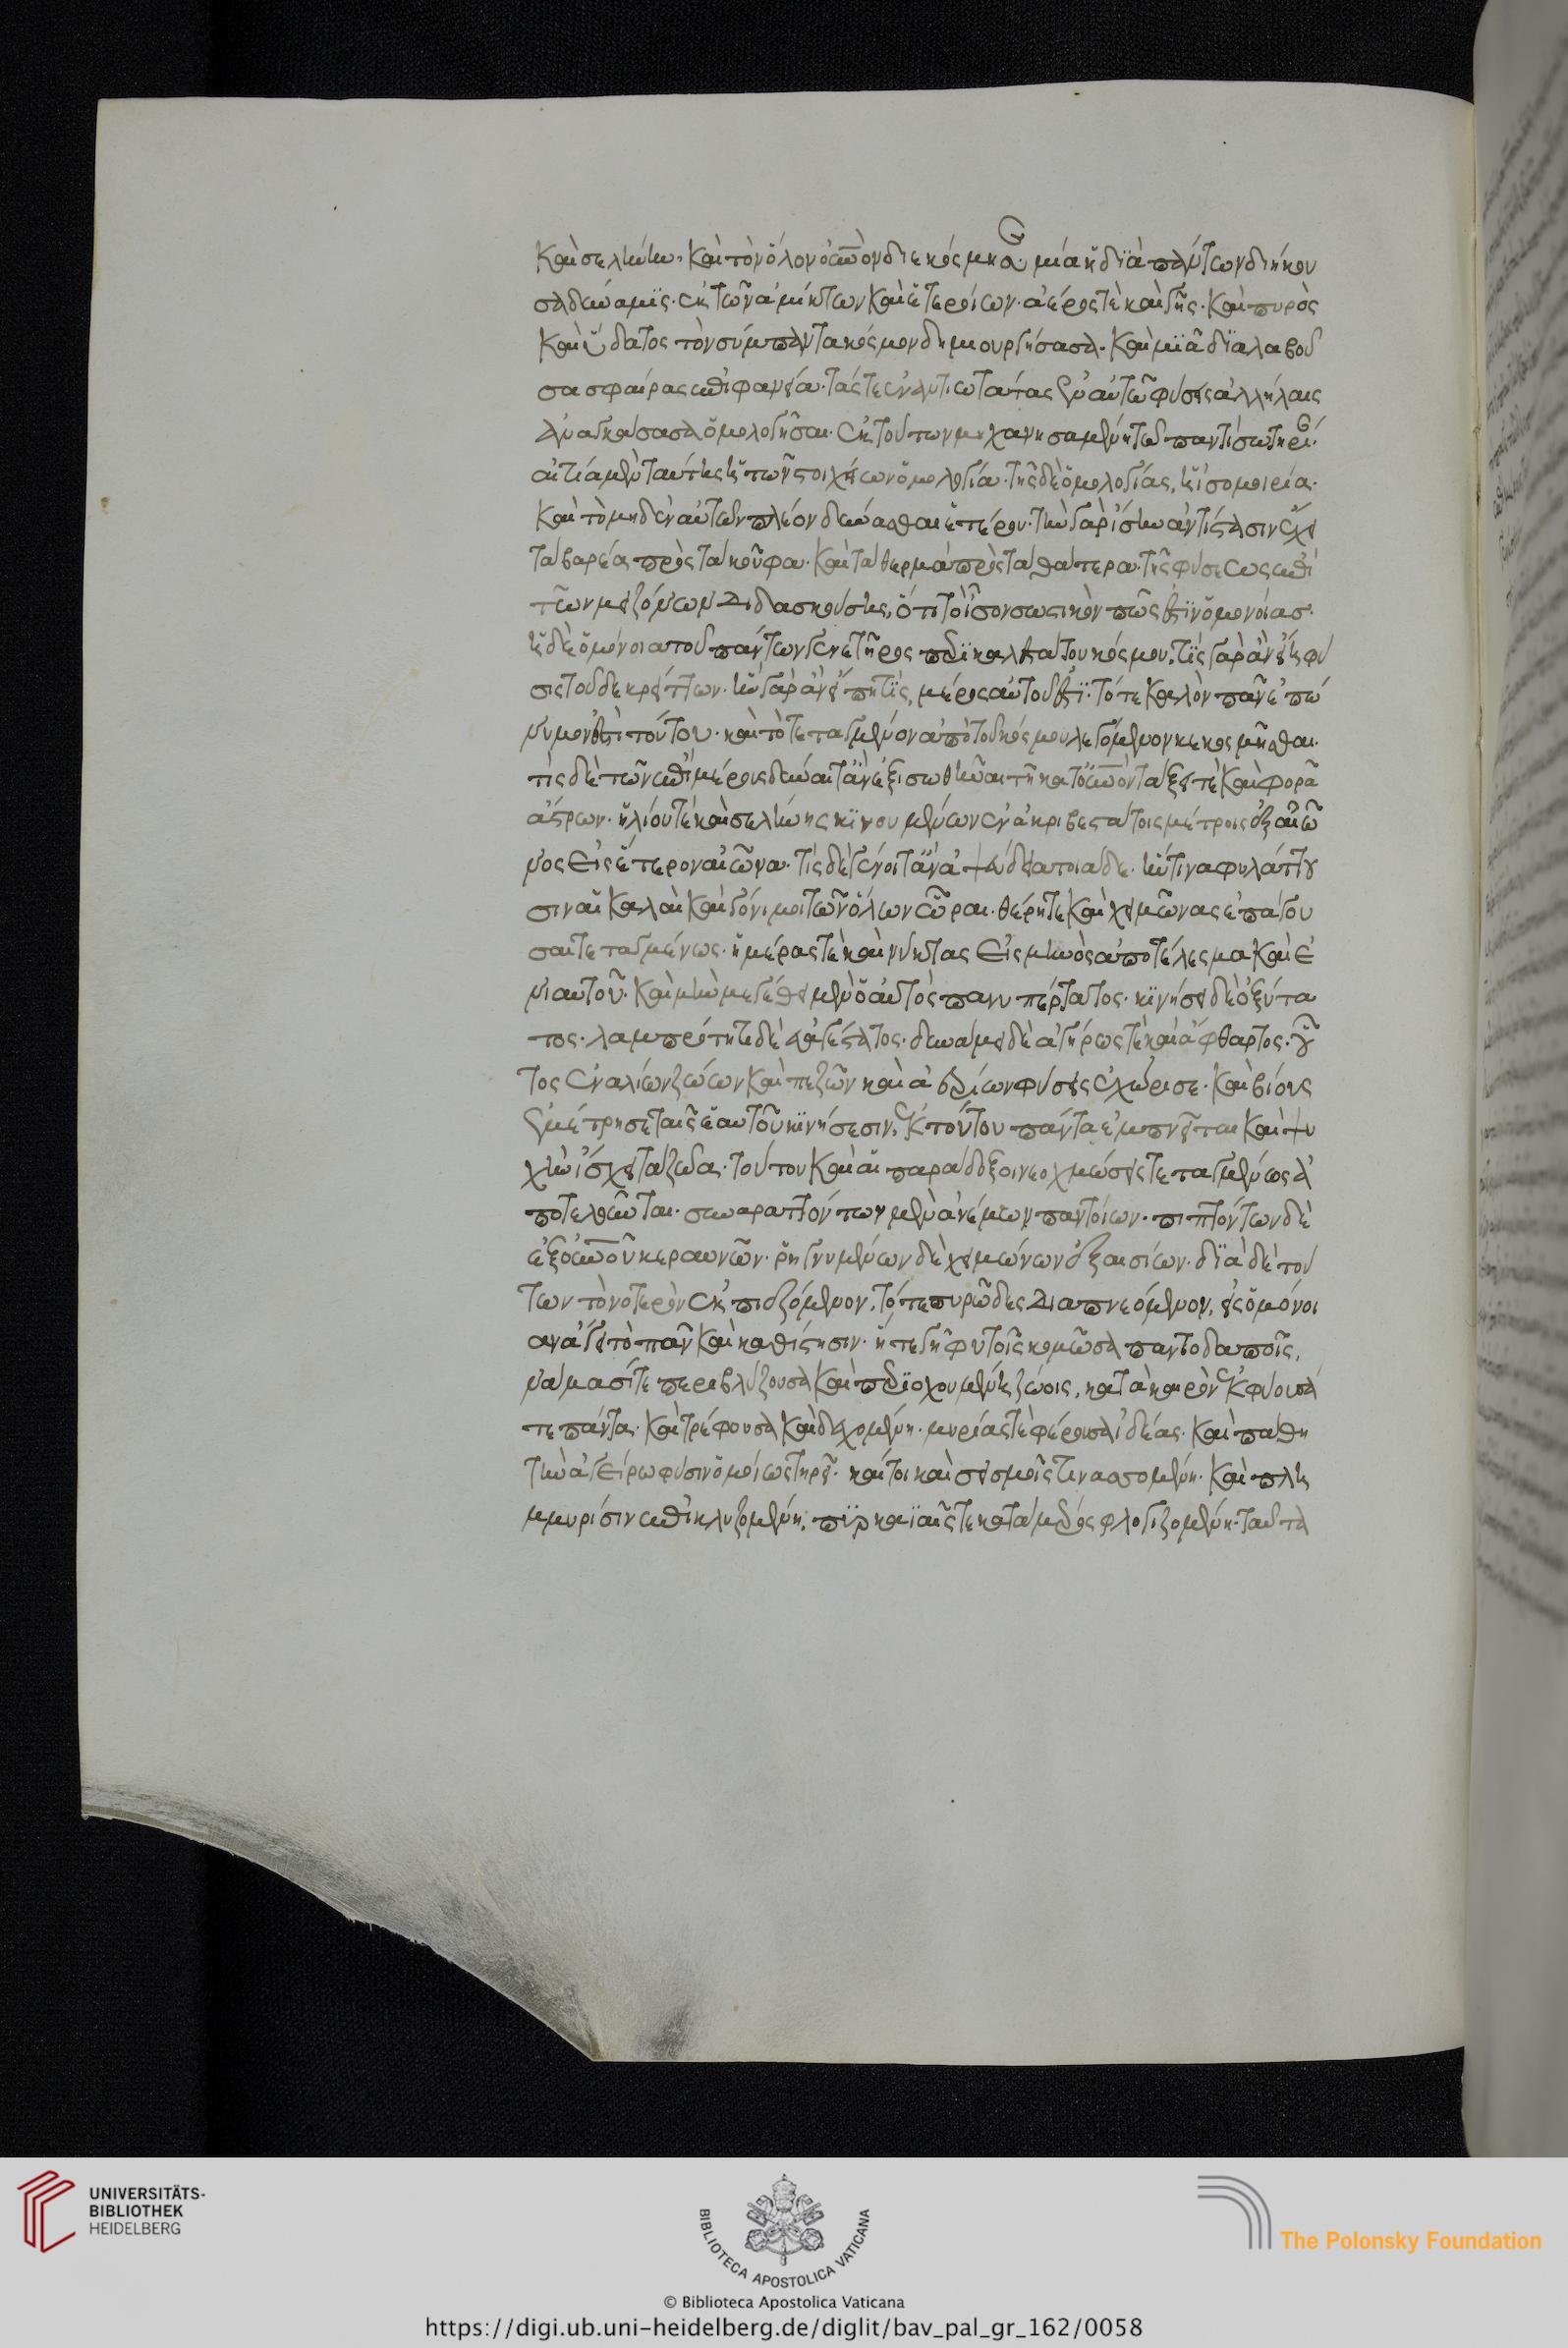 καὶ σελήνην. καὶ τὸν ὅλον οὐνὸν διεκόσμησε. μία ἡ διὰ πάντων διήκου
σα δύναμις. ἐκ τῶν ἀμίκτων καὶ ἑτεροίων. ἀέρος τὲ καὶ γῆς. καὶ πυρὸς
καὶ ὕδατος τὸν σύμπαντα κόσμον δημιουργήσασα. καὶ μιᾶ διαλαβοῦ
σα σφαίρας ἐπιφανεία. τάς τε ἐναντιωτάτας ἐν αὐτῶ φύσεις ἀλλήλαις
ἀναγκάσασα ὁμολογῆσαι. ἐκ τούτων μηχανησαμένη τῶ παντὶ σωτηρί.
αἰτία μὲν ταύτης ἡ τῶν στοιχείων ὁμολογία. τῆς δὲ ὁμολογίας, ἡ ἰσομοιρία.
καὶ τὸ μηδὲν αὐτῶν πλέον δύνασθαι ἑτέρου. τὴν γὰρ ἴσην ἀντίστασιν ἔχει
τὰ βαρέα πρὸς τὰ κοῦφα. καὶ τὰ θερμὰ πρὸς τὰ θάτερα. τῆς φύσεως ἐπὶ
τῶν μειζόνων διδασκούσης, ὅτι τὸ ἴσον σωστικὸν πῶς ἐστὶν ὁμονοίας.
ἡ δὲ ὁμόνοια τοῦ πάντων γενετῆρος περικαλλεστάτου κόσμου, τίς γὰρ ἂν εἴη φύ
σις τοῦδε κρείττων. ἣν γὰρ ἂν εἴπη τίς, μέρος αὐτοῦ ἐστί. τό τε καλὸν πᾶν ἐπώ
νυμον ἐστὶ τούτου. καὶ τὸ τεταγμένον ἀπὸ τοῦ κόσμου λεγόμενον κεκοσμῆσθαι.
τίς δὲ τῶν ἐπὶ μέρους δύναιτ' ἂν ἐξισωθῆναι τῆ κατ' οὐνὸν τάξει τὲ καὶ φορᾶ
ἄστρων. ἡλίου τὲ καὶ σελήνης κινουμένων ἐν ἀκριβεστάτοις μέτροις ἐξ αἰῶ
νος εἰς ἕτερον αἰῶνα. τίς δὲ γένοιτ' ἂν ἀψεύδεια τοιάδε. ἥντινα φυλάττου
σιν αἱ καλαὶ καὶ γόνιμοι τῶν ὅλων ὧραι. θέρη τε καὶ χειμῶνας ἐπάγου
σαι τεταγμένως. ἡμέρας τὲ καὶ νύκτας εἰς μηνὸς ἀποτέλεσμα καὶ ἐ
νιαυτοῦ. καὶ μὴν μεγέθει μὲν ὁ αὐτὸς πανυπέρτατος. κινήσει δὲ ὀξύτα
τος. λαμπρότητι δὲ εὐαγέστατος. δυνάμει δὲ ἀγήρως τὲ καὶ ἄφθαρτος. οὗ
τος ἐναλίων ζώων καὶ πεζῶν καὶ ἀερίων φύσεις ἐχώρισε. καὶ βίους
ἐμέτρησε ταῖς ἑαυτοῦ κινήσεσιν, ἐκ τούτου πάντα ἐμπνεῖται καὶ ψυ
χὴν ἴσχει τὰ ζῶα. τούτου καὶ αἱ παράδοξοι νεοχμώσεις τεταγμένως ἀ
ποτελοῦνται. συναραττόντων μὲν ἀνέμων παντοίων. πιπτόντων δὲ
ἐξ οὐνοῦ κεραυνῶν. ῥηγνυμένων δὲ χειμώνων ἐξαισίων. διὰ δὲ τού
των τὸ νοτερὸν ἐκπιεζόμενον, τό τε πυρῶδες διαπνεόμενον, εἰς ὁμόνοι
αν ἄγει τὸ πᾶν καὶ καθίστησιν. ἥ τε γῆ φυτοῖς κομῶσα παντοδαποῖς,
νάμασί τε περιβλύζουσα καὶ περιοχουμένη ζώοις, κατὰ καιρὸν ἐκφύουσά
τε πάντα. καὶ τρέφουσα καὶ δεχομένη. μυρίας τὲ φέρουσα ἰδέας. καὶ πάθη
τὴν ἀγείρω φύσιν ὁμοίως τηρεῖ. καίτοι καὶ σεισμοῖς τινασσομένη. καὶ πλη
μμυρίσιν ἐπικλυζομένη, πυρκαϊαῖς τε κατὰ μέρος φλογιζομένη. ταῦτα
UNIVERSITÄTS-
BIBLIOTHEK
HEIDELBERG
BIBLIOTECA APOSTOLICA VATICANA
The Polonsky Foundation
© Biblioteca Apostolica Vaticana
https://digi.ub.uni-heidelberg.de/diglit/bav_pal_gr_162/0058